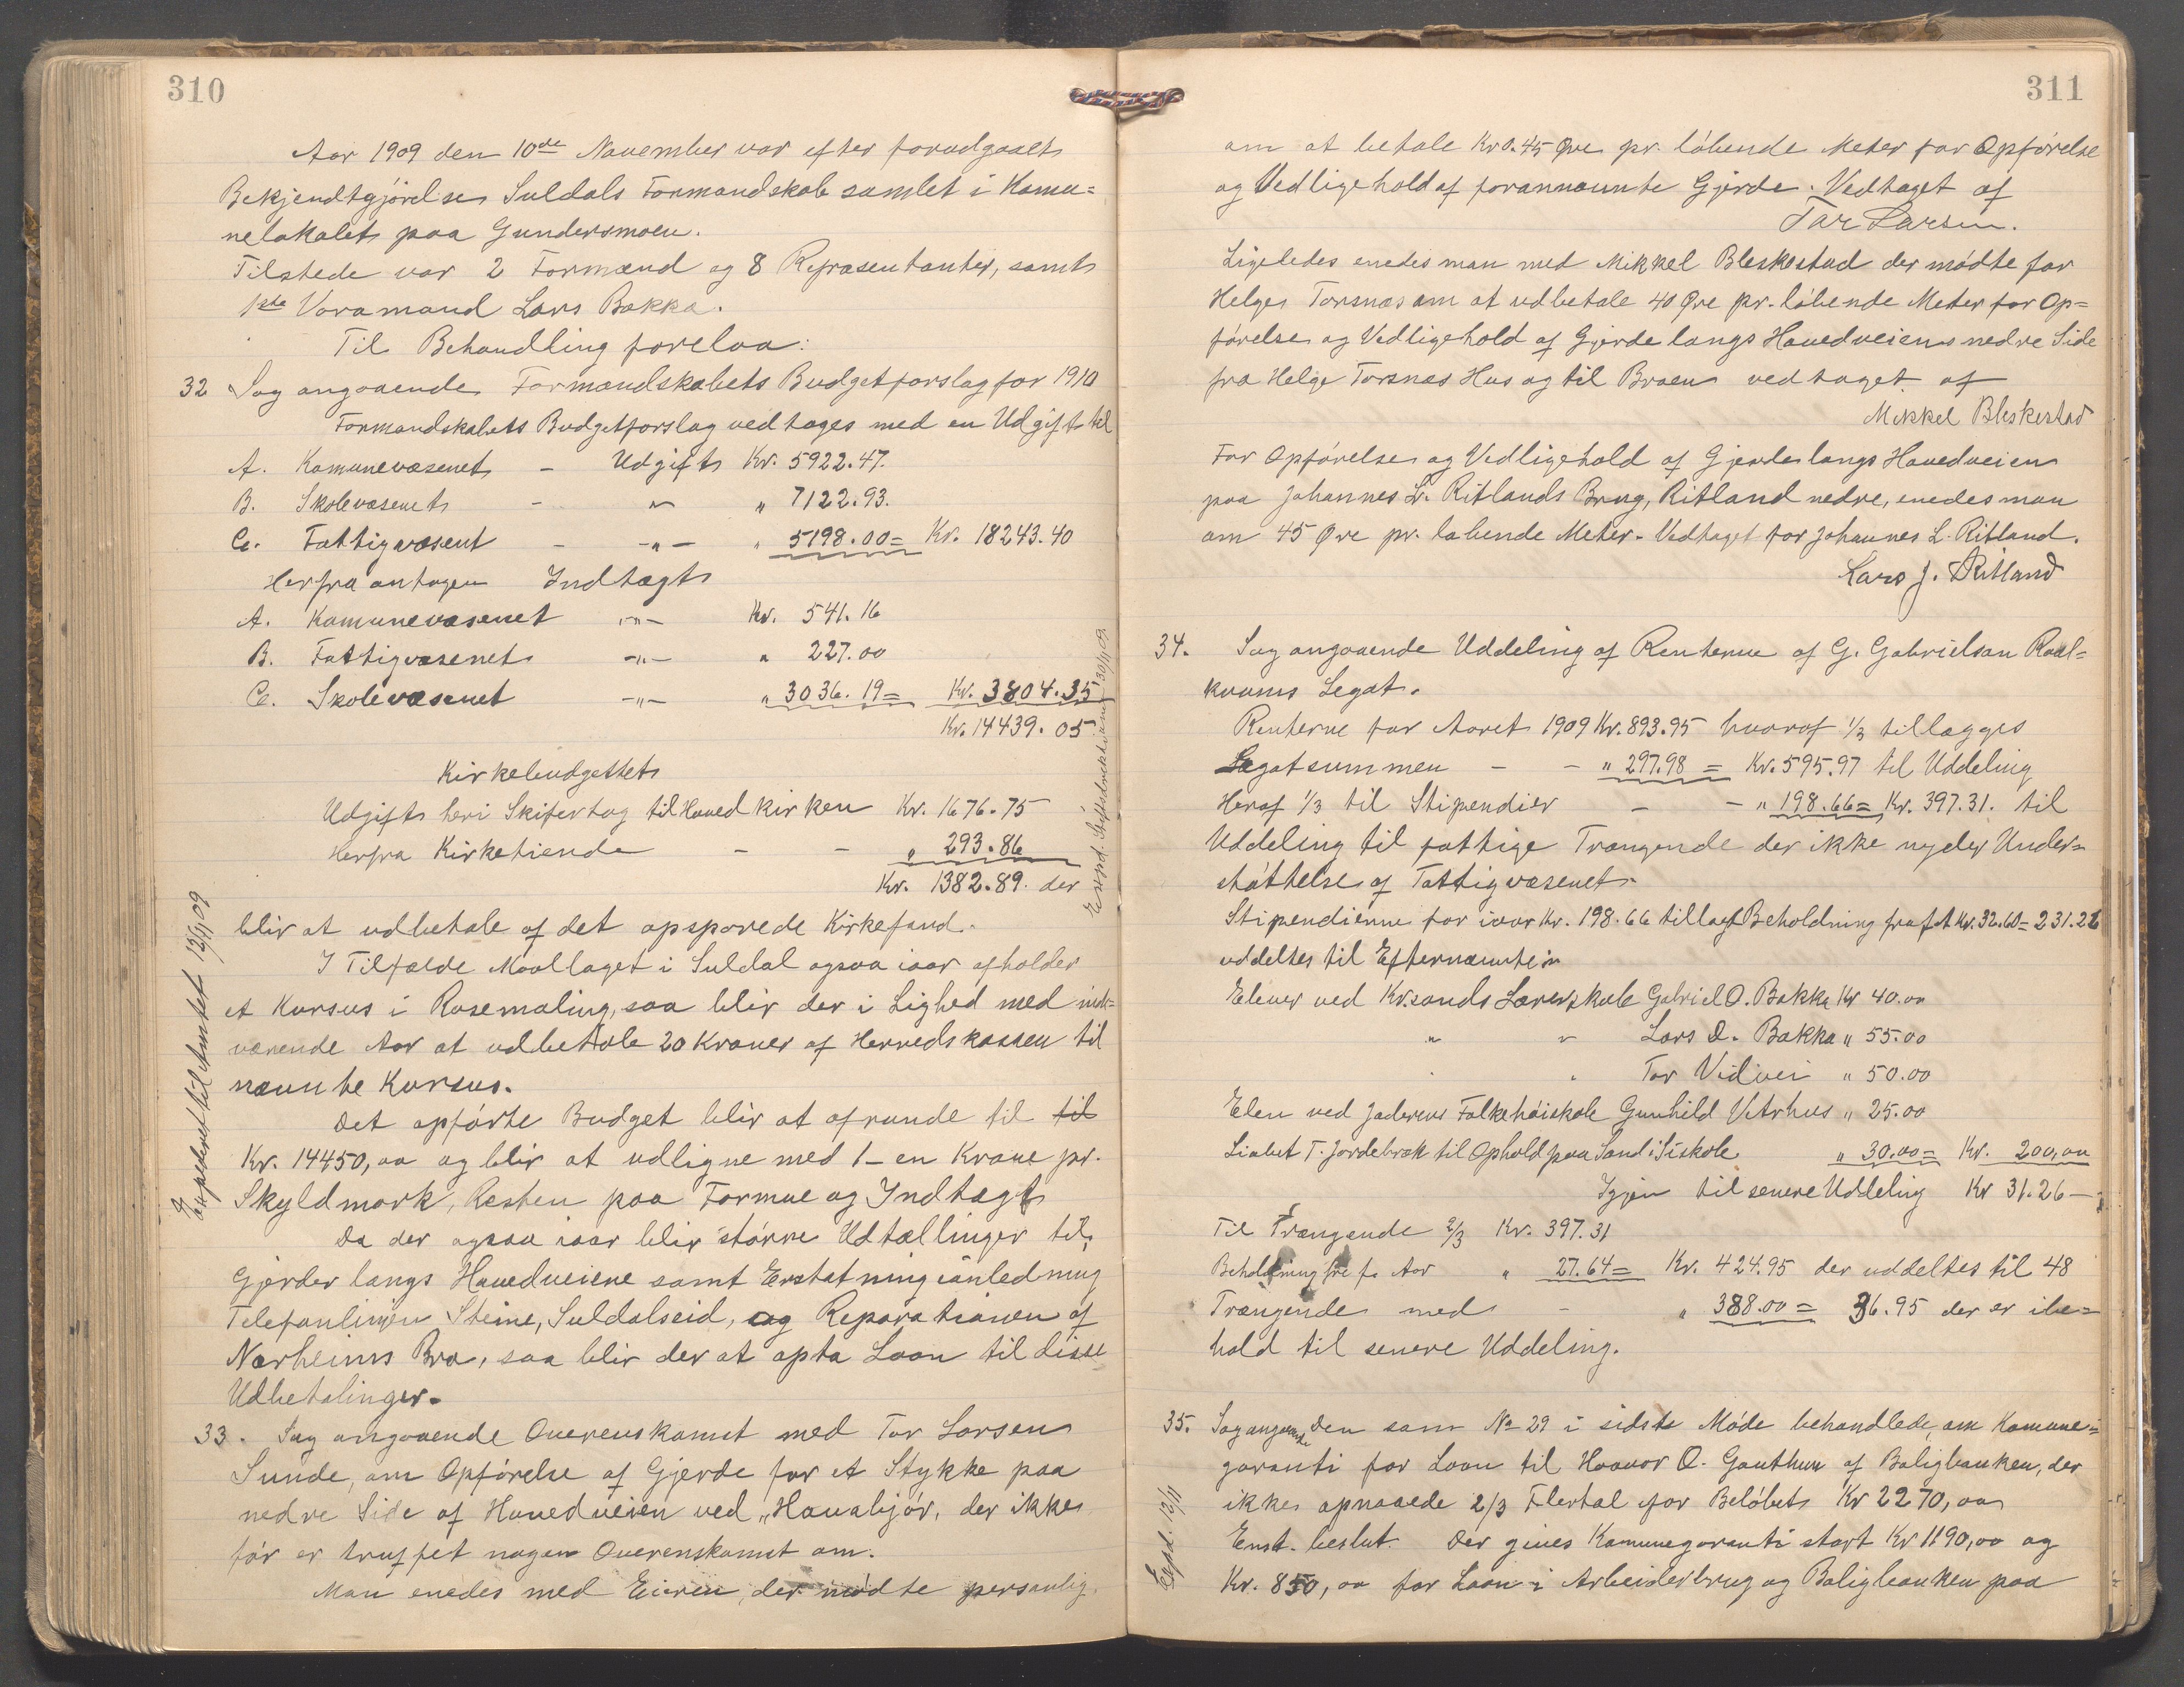 310
Aar 1909 den 10de November var efter forudgaaet
Bekjendtgjørelse Suldals Formandskab samlet i Komu=
nelokalet paa Gundersmoen.
Tilstede var 2 Formænd og 8 Repræsentanter, samt
1ste Varamand Lars Bakka.
Til Behandling forelaa:
32 Sag angaaende Formandskabets Budgetforslag for 1910
Formandskabets Budgetforslag vedtages med en Udgift til
A. Komunevæsenet - Udgift Kr. 5922.47.
B. Skolevæsenet - " " 7122.93.
C. Fattigvæsent - -"- " 5198.00 = Kr. 18243.40
Herfra antagen Indtægt
A. Komunevæsenet -"- Kr. 541.16
B. Fattigvæsenet -"- " 227.00
C. Skolevæsenet -"- " 3036.19 = Kr. 3804.35
Kr. 14439.05
Kirkebudgettet
Udgift heri Skifertag til Hovedkirken Kr. 1676.75
Herfra Kirketiende - - " 293.86
Kr. 1382.89. der
Exspd. Stiftsdirektionen 30/11 09
blir at udbetale af det opsparede Kirkefond.
I Tilfælde Maallaget i Suldal ogsaa iaar afholder
et Kursus i Rosemaling, saa blir der i Lighed med ind=
værende Aar at udbetale 20 Kroner af Herredskassen til
nævnte Kursus.
Det opførte Budget blir at afrunde til til
Kr. 14450,00 og blir at udligne med 1 - en Krone pr.
Skyldmark, Resten paa Formue og Indtægt
Da der ogsaa iaar blir større Udtællinger til
Gjerder langs Hovedveiene samt Erstatning i anledning
Telefonlinjen Steine, Suldalseid, og Reparationen af
Nærheims Bro, saa blir der at opta Laan til disse
Udbetalinger.
Expederet til Amtet 12/11 09
33. Sag angaaende Overenskomst med Tor Larsen
Sunde, om Opførelse af Gjerde for et Stykke paa
nedre Side af Hovedveien ved "Havabjør, der ikke
før er truffet nogen Overenskomst om.
Man enedes med Eieren, der mødte personlig.
311
om at betale Kr 0.45 Øre pr. løbende Meter for Opførelse
og Vedligehold af forannævnte Gjerde. Vedtaget af
Tor Larsen.
Ligeledes enedes man med Mikkel Bleskestad der mødte for
Helge Torsnæs om at udbetale 40 Øre pr. løbende Meter for Op=
førelse og Vedligehold af Gjerde langs Hovedveiens nedre Side
fra Helge Torsnæs Hus og til Broen vedtaget af
Mikkel Bleskestad
For Opførelse og Vedligehold af Gjerde langs Hovedveien
paa Johannes L. Ritlands Brug, Ritland nedre, enedes man
om 45 Øre pr. løbende Meter. Vedtaget for Johannes L. Ritland.
Lars J. Ritland
34. Sag angaaende Uddeling af Renterne af G. Gabrielsøn Roal=
kvams Legat.
Renterne for Aaret 1909 Kr. 893.95 hvoraf 1/3 tillægges
Legatsummen - - " 297.98 = Kr. 595.97 til Uddeling
Heraf 1/3 til Stipendier - - " 198.66 = Kr. 397.31. til
Uddeling til fattige Trængende der ikke nyder Under=
støttelse af Fattigvæsenet.
Stipendierne for iaar Kr. 198.66 tillagt Beholdning fra f. A Kr. 32.60 = 231.26
uddeltes til Efternævnte:
Elever ved Kr.sands Lærerskole Gabriel O. Bakka Kr 40.00
" " Lars D. Bakka " 55.00
" " Tor Vidvei " 50.00
Elev ved Jæderens Folkehøiskole Gunhild Vetrhus " 25.00
Liabet T. Jordebrek til Ophold paa Sand i Siskole " 30.00 = Kr. 200,00
Igjen til senere Uddeling Kr 31.26 -
Til Trængende 2/3 Kr. 397.31
Beholdning fra f. Aar " 27.64 = Kr. 424.95 der uddeltes til 48
Trængende med - " 388.00 = 36.95 der er ibe=
hold til senere Uddeling.
35. Sag angaaende Den som No 29 i sidste Møde behandlede, om Komune=
garanti for Laan til Haavar O. Gauthun af Boligbanken, der
ikke opnaaede 2/3 Flertal for Beløbet Kr 2270,00
Enst. beslut. Der gives Komunegaranti stort Kr 1190,00 og
Kr. 850,00 for Laan i Arbeiderbrug og Boligbanken paa
Expd. 12/11